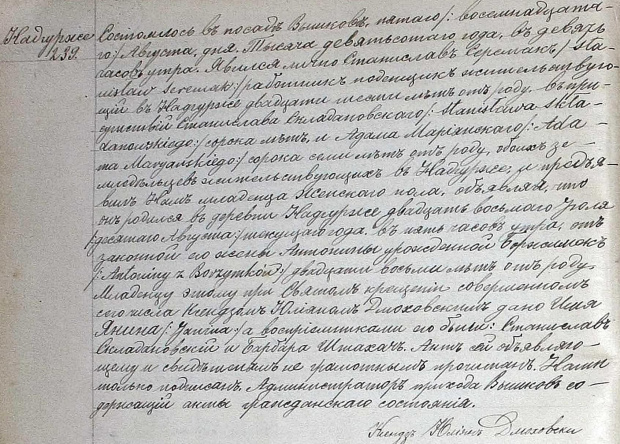 Надгурже
239.
Состоялось въ посадѣ Вышковѣ, пятаго /: восемнадцата-
го :/ Августа, дня. Тысяча девятьсотаго года, въ девять
часовъ утра. Явился лично Станиславъ Серемакъ /: Sta-
nisław Seremak :/ работникъ поденщикъ жительствую-
щій въ Надгуржѣ двадцати шести лѣтъ отъ роду, въ при-
сутствіи Станислава Складановскаго /: Stanisława Skła-
danowskiego :/ сорока лѣтъ, и Адама Маріанскаго /: Ada-
ma Maryańskiego :/ сорока семи лѣтъ отъ роду, обоихъ зе-
мледѣльцевъ жительствующихъ въ Надгуржѣ, и предъя-
вилъ Намъ младенца женскаго пола, объявляя, что
онъ родился въ деревни Надгурже двадцать восьмого Іюля
/десятаго Августа:/ текущаго года, въ пять часовъ утра, отъ
законной его жены Антонины урожденной
/: Antoniny z :/ двадцати восьми лѣтъ отъ роду.
Младенцу этому при Святомъ крещеніи совершенномъ
сего числа Ксендзомъ Юліаномъ Дмоховскимъ дано имя
Янина /: Janina :/ а воспріемниками его были: Станиславъ
Складановскій и Барбара Штахачъ. Актъ сей объявляю-
щему и свидѣтелямъ не грамотнымъ прочитанъ, Нами
только подписанъ. Администраторъ прихода Вышковъ со-
держащій акты гражданскаго состоянія.
Ксендзъ Юліанъ Дмоховски